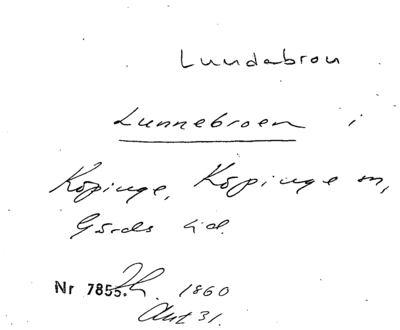 Lundabron
Lunnebroen i
Köpinge, Köpinge sn,
Gärds hd.
Nr 7855. 1860
Avt 31.